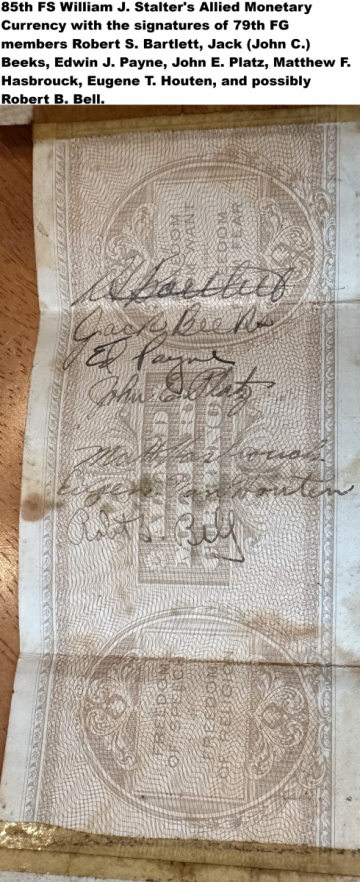 85th FS William J. Stalter's Allied Monetary
Currency with the signatures of 79th FG
members Robert S. Bartlett, Jack (John C.)
Beeks, Edwin J. Payne, John E. Platz, Matthew F.
Hasbrouck, Eugene T. Houten, and possibly
Robert B. Bell.
FREEDOM
FROM WANT
FREEDOM
FROM FEAR
Jack Beeks
Ed Payne
John E Platz
Hasbrouck
Eugene VanHouten
Robt Bell
FREEDOM
OF SPEECH
FREEDOM
OF RELIGION